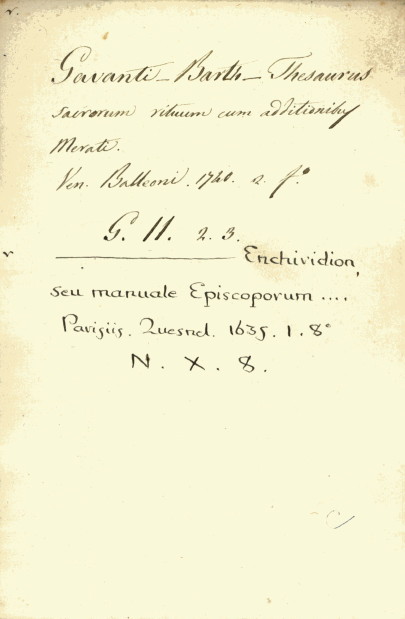 Gavanti – Barth – Thesaurus
sacrorum rituum cum additionibus
Merati.
Ven. Balleoni. 1740. 2. fº
G. II. 2. 3.
Enchiridion,
seu manuale Episcoporum ....
Parisiis. Quesnel. 1635. 1. 8º
N. X. 8.